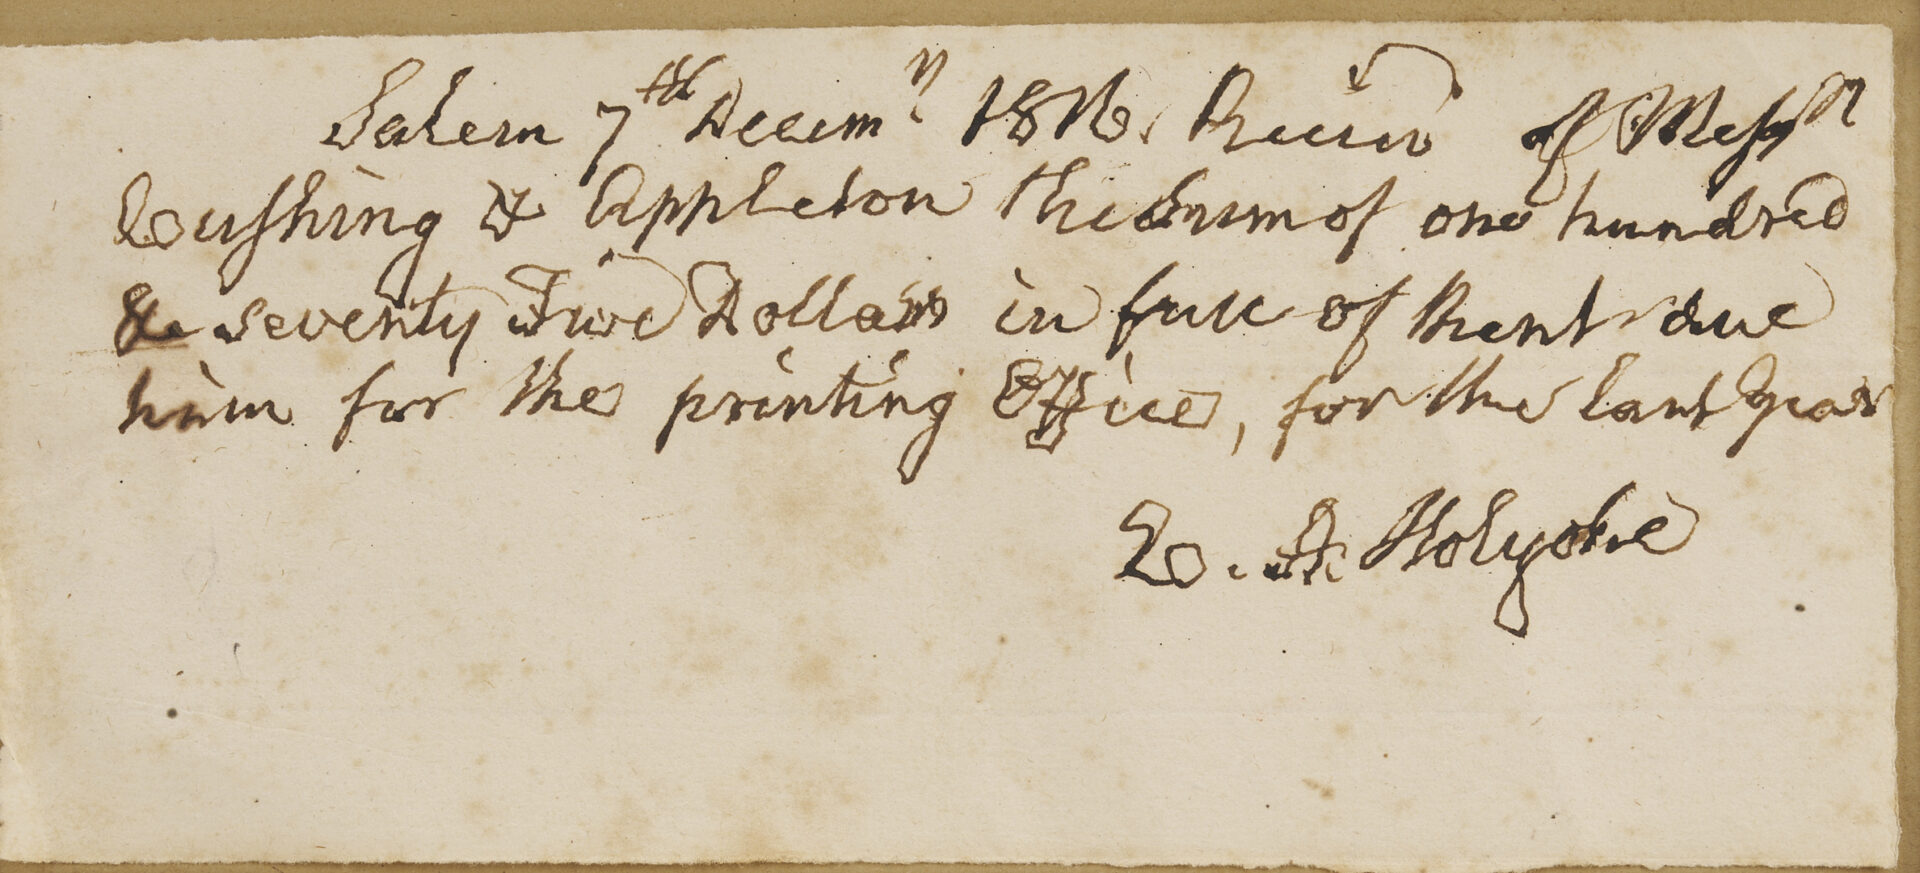 Salem 7th Decemr. 1816. Receivd of Messrs
Cushing & Appleton the Sum of one hundred
& seventy Five Dollars in full of Rent due
him for the printing Office, for the last Year
E. A. Holyoke